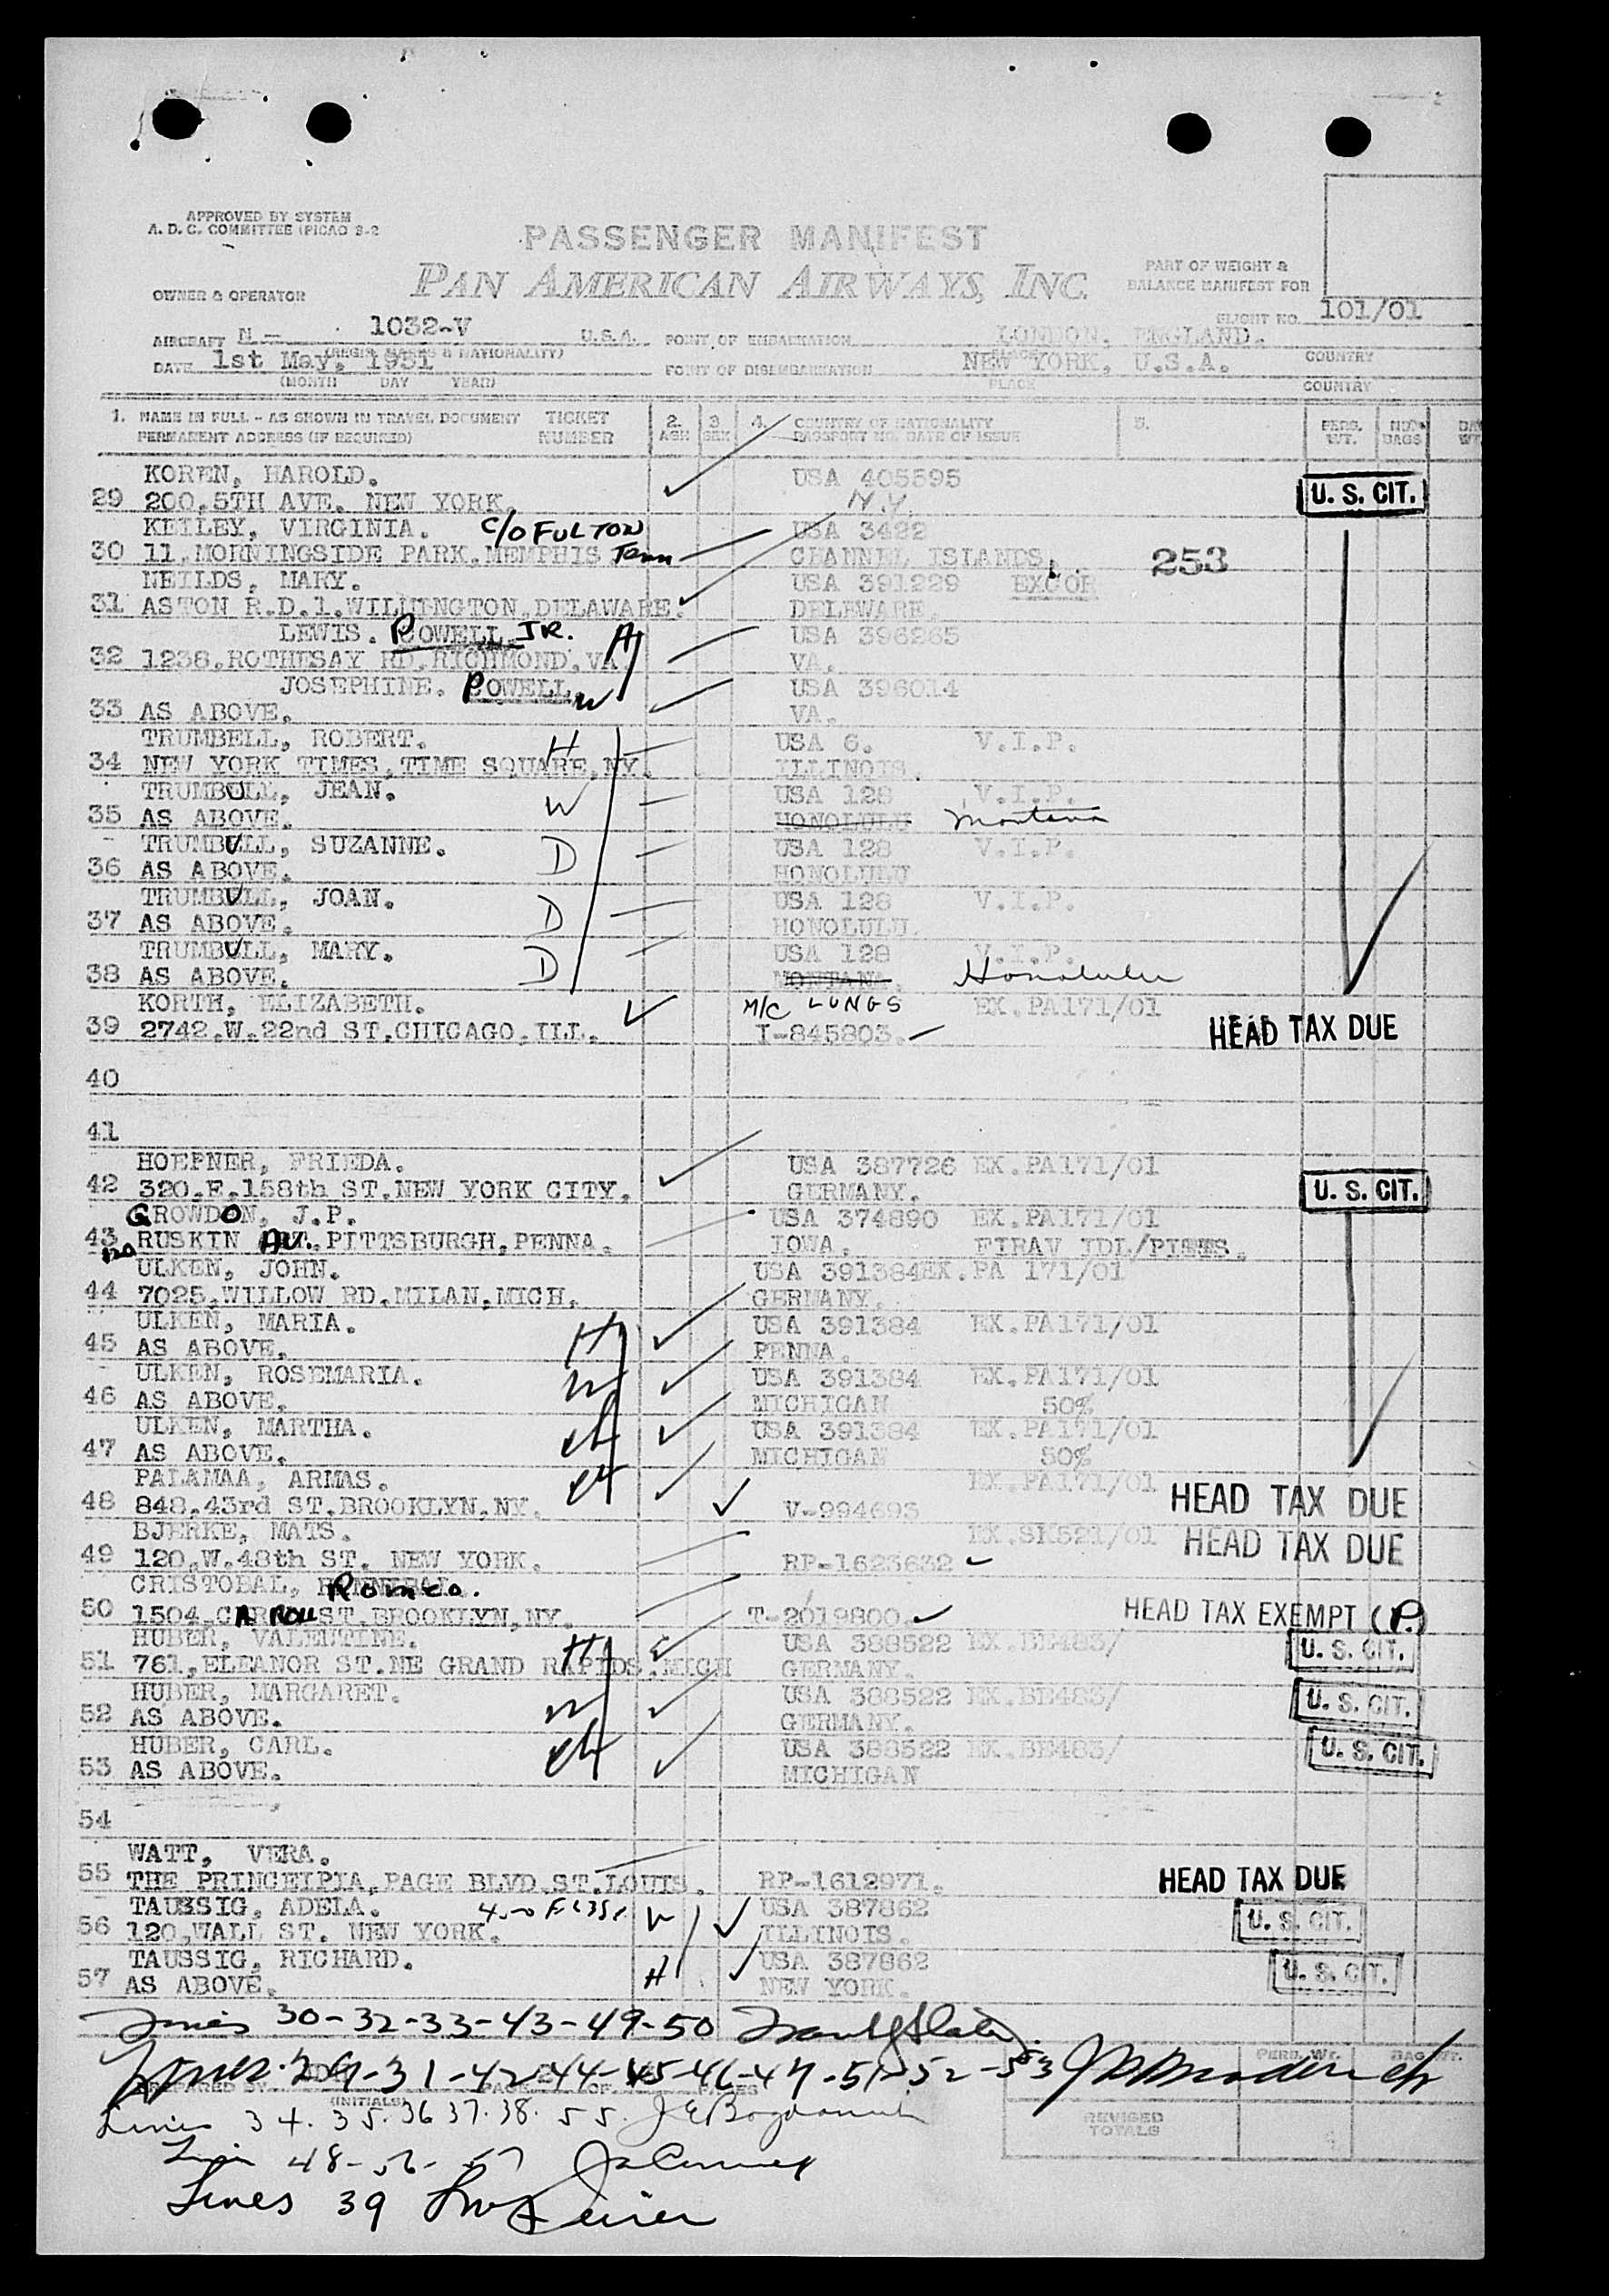 APPROVED BY SYSTEM
A. D. C. COMMITTEE (PICAO 3-2
PASSENGER MANIFEST
PAN AMERICAN AIRWAYS, INC.
PART OF WEIGHT &
BALANCE MANIFEST FOR
OWNER & OPERATOR
FLIGHT NO. 101/01
AIRCRAFT N - 1032-V U.S.A. POINT OF EMBARKATION LONDON, ENGLAND.
(REGIS. MARKS & NATIONALITY) PLACE COUNTRY
DATE 1st May, 1951 POINT OF DISEMBARKATION NEW YORK, U.S.A.
(MONTH DAY YEAR) PLACE COUNTRY
1. NAME IN FULL - AS SHOWN IN TRAVEL DOCUMENT TICKET 2. 3. 4. COUNTRY OF NATIONALITY 5. PERS. NO. BAG
PERMANENT ADDRESS (IF REQUIRED) NUMBER AGE SEX PASSPORT NO. DATE OF ISSUE WT. BAGS WT
KOREN, HAROLD. USA 405595
29 200.5TH AVE. NEW YORK. N.Y. U. S. CIT.
KEILEY, VIRGINIA. C/O FULTON USA 3422
30 11.MORNINGSIDE PARK.MEMPHIS Tenn CHANNEL ISLANDS. 253
NEILDS, MARY. USA 391229 EXCOR
31 ASTON R.D.1.WILMINGTON.DELAWARE. DELEWARE.
LEWIS. POWELL JR. H USA 396265
32 1238.ROTHESAY RD.RICHMOND.VA. VA.
JOSEPHINE. POWELL. W USA 396014
33 AS ABOVE. VA.
TRUMBELL, ROBERT. H USA 6. V.I.P.
34 NEW YORK TIMES.TIME SQUARE.NY. ILLINOIS.
TRUMBULL, JEAN. W USA 128 V.I.P.
35 AS ABOVE. HONOLULU Montana
TRUMBULL, SUZANNE. D USA 128 V.I.P.
36 AS ABOVE. HONOLULU
TRUMBULL, JOAN. D USA 128 V.I.P.
37 AS ABOVE. HONOLULU.
TRUMBULL, MARY. D USA 128 V.I.P.
38 AS ABOVE. MONTANA. Honolulu
KORTH, ELIZABETH. M/C LUNGS EX.PA171/01
39 2742.W.22nd ST.CHICAGO.ILL. I-845803. HEAD TAX DUE
40
41
HOEPNER, FRIEDA. USA 387726 EX.PA171/01
42 320.E.158th ST.NEW YORK CITY. GERMANY. U. S. CIT.
GROWDON, J.P. USA 374890 EX.PA171/01
43 120 RUSKIN AV.PITTSBURGH,PENNA. IOWA. FIRAV IDL/PITTS.
ULKEN, JOHN. USA 391384 EX.PA 171/01
44 7025.WILLOW RD.MILAN.MICH. GERMANY.
ULKEN, MARIA. H USA 391384 EX.PA171/01
45 AS ABOVE. PENNA.
ULKEN, ROSEMARIA. W USA 391384 EX.PA171/01
46 AS ABOVE. MICHIGAN 50%
ULKEN, MARTHA. ch USA 391384 EX.PA171/01
47 AS ABOVE. MICHIGAN 50%
PALAMAA, ARMAS. ch EX.PA171/01
48 848.43rd ST.BROOKLYN.NY. V-994693 HEAD TAX DUE
BJERKE, MATS. EX.SK521/01
49 120.W.48th ST. NEW YORK. RP-1623632 HEAD TAX DUE
CRISTOBAL, Romeo.
50 1504.CARROLL ST.BROOKLYN,NY. T-2019800. HEAD TAX EXEMPT (P.)
HUBER, VALENTINE. H USA 388522 EX.BE483/
51 761.ELEANOR ST.NE GRAND RAPIDS.MICH GERMANY. U. S. CIT.
HUBER, MARGARET. W USA 388522 EX.BE483/
52 AS ABOVE. GERMANY. U. S. CIT.
HUBER, CARL. ch USA 388522 EX.BE483/
53 AS ABOVE. MICHIGAN U. S. CIT.
54
WATT, VERA.
55 THE PRINCEIPIA.PAGE BLVD.ST.LOUIS. RP-1612971. HEAD TAX DUE
TAUSSIG, ADELA. W USA 387862
56 120.WALL ST. NEW YORK. ILLINOIS. U. S. CIT.
TAUSSIG, RICHARD. H USA 387862
57 AS ABOVE. NEW YORK. U. S. CIT.
Lines 30-32-33-43-49-50
Lines 29-31-42-44-45-46-47-51-52-53
PREPARED BY (INITIALS) PAGE OF PAGES PERS. WT. BAG. WT.
Lines 34. 35. 36 37. 38. 55.
REVISED
TOTALS
Lines 48-56-57
Lines 39